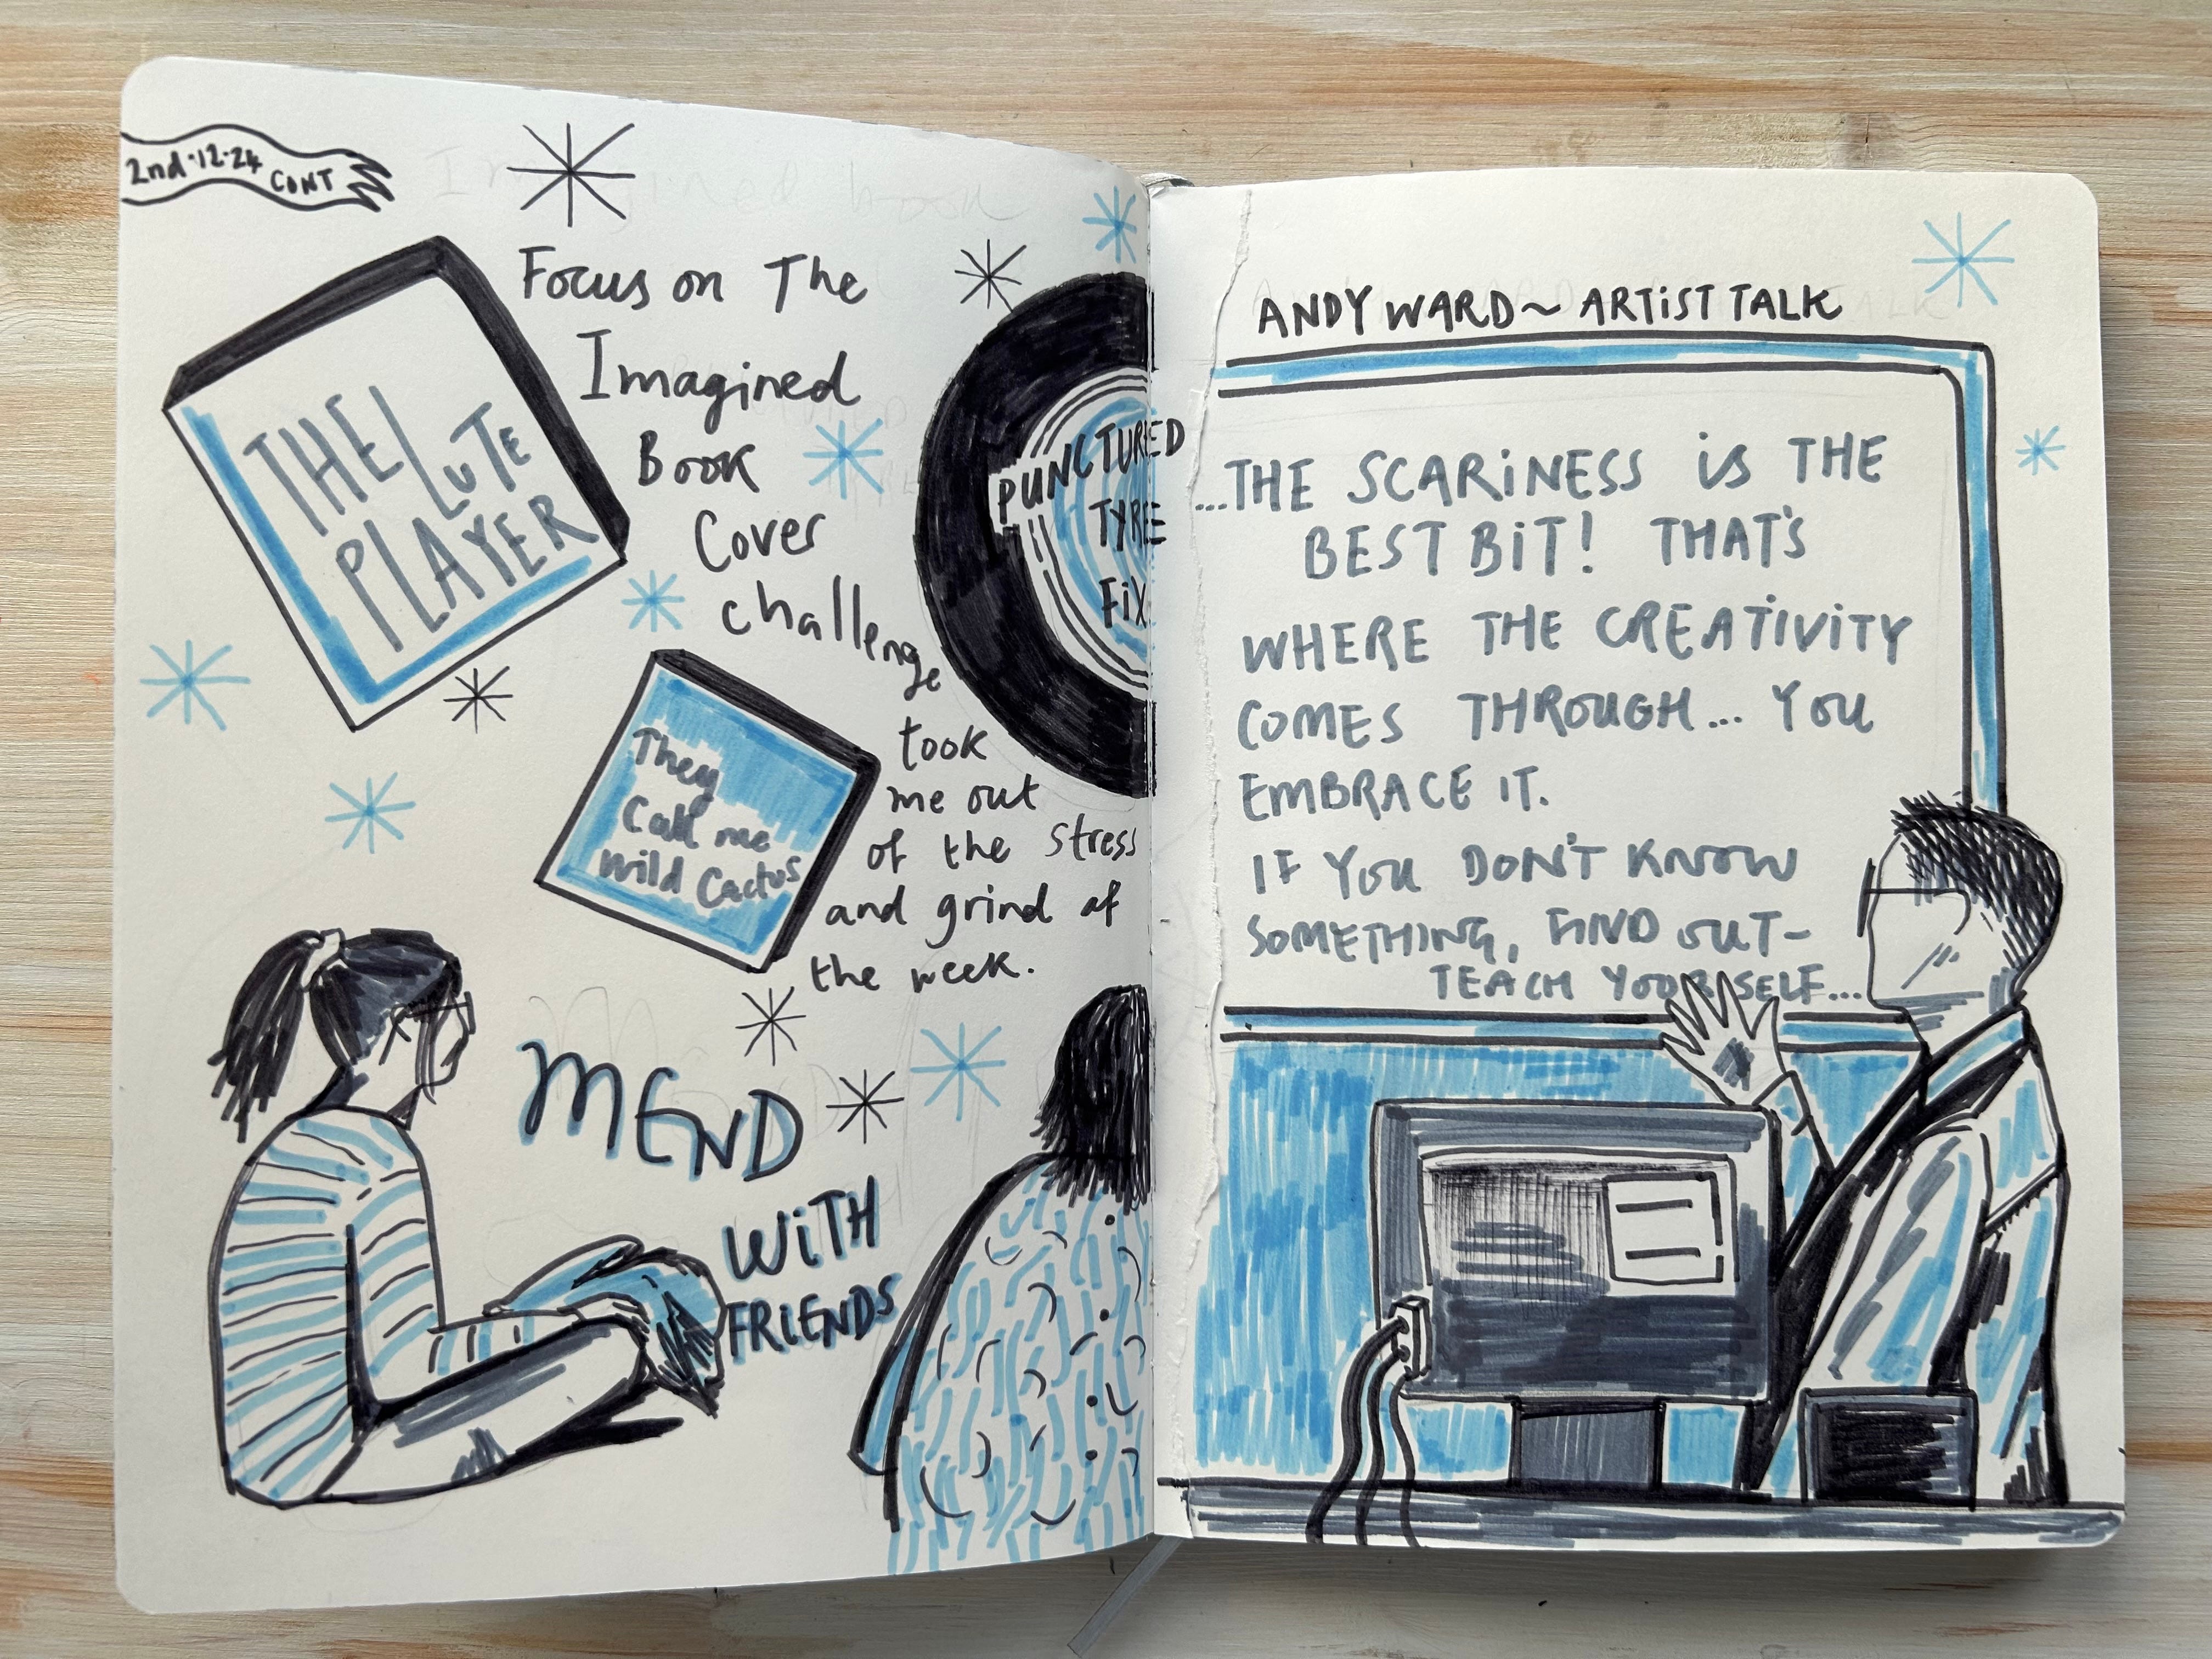 2nd·12·24
CONT
Focus on The
Imagined
Book
Cover
challenge
took
me out
of the stress
and grind of
the week.
THE LUTE
PLAYER
They
Call me
Wild Cactus
PUNCTURED
TYRE
FIX
MEND
WITH
FRIENDS
ANDY WARD ~ ARTIST TALK
...THE SCARINESS IS THE
BEST BIT! THAT'S
WHERE THE CREATIVITY
COMES THROUGH... YOU
EMBRACE IT.
IF YOU DON'T KNOW
SOMETHING, FIND OUT-
TEACH YOURSELF...